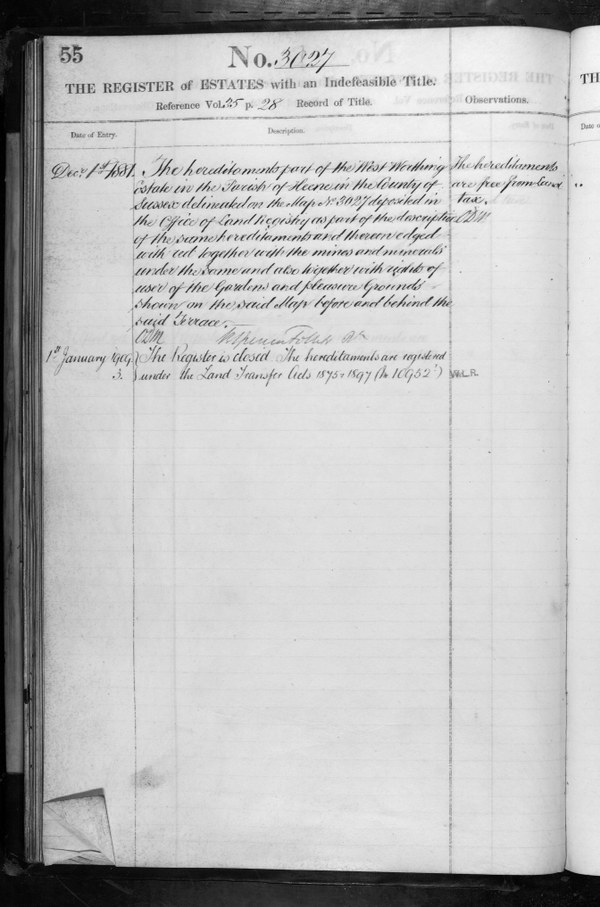 55
No. 3027
THE REGISTER of ESTATES with an Indefeasible Title.
Reference Vol. 25 p. 28 Record of Title.
Observations.
Date of Entry.
Description.
Decr. 1st 1881. The hereditaments part of the West Worthing
estate in the Parish of Heene in the County of
Sussex delineated on the Map No. 3027 deposited in
the Office of Land Registry as part of the description
of the same hereditaments and thereon edged
with red together with the mines and minerals
under the same and also together with rights of
user of the Gardens and pleasure Grounds
shown on the said Map before and behind the
said Terrace.
The hereditaments
are free from Land
tax.
1st January 1909. The Register is closed. The hereditaments are registered
3. under the Land Transfer Acts 1875 & 1897 (No 10952)
W.L.R.
TH
Date o